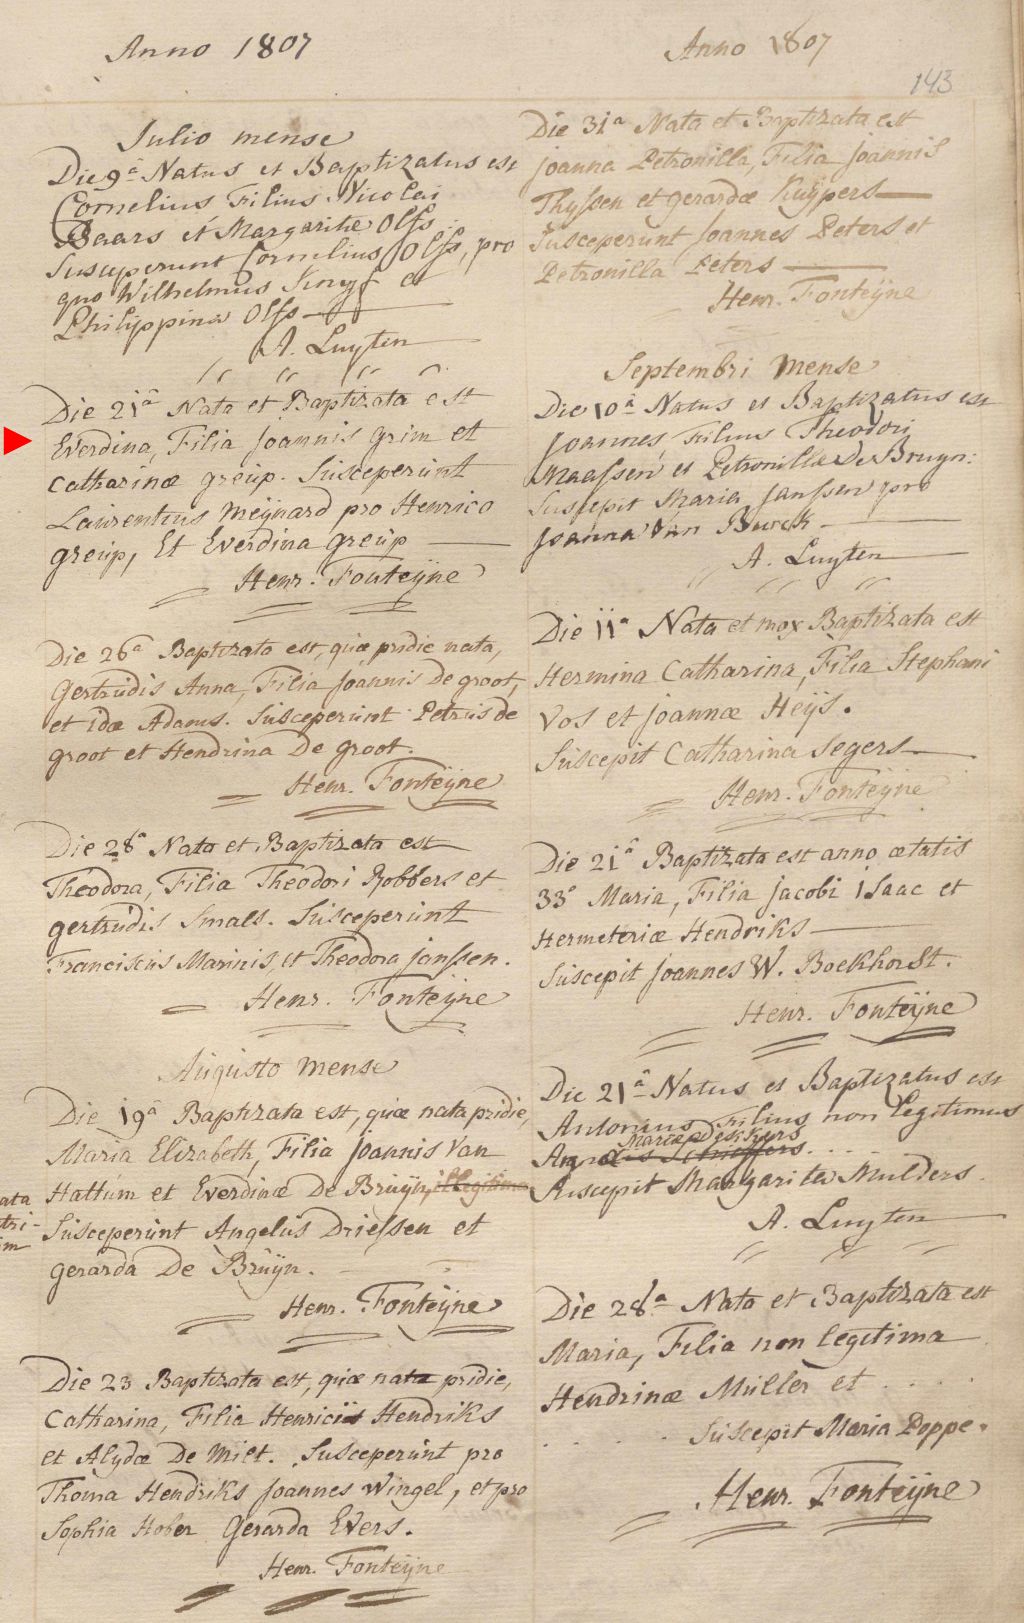 Anno 1807
Julio mense
Die 9a Natus et Baptizatus est
Cornelius Filius Nicolai
Baars et Margarithe Olfs
Susceperunt Cornelius Olfs, pro
quo Wilhelmus et
Philippina Olfs
A. Luyten
Die 21a Nata et Baptizata est
Everdina, Filia Joannis Grim et
Catharinæ greup. Susceperunt
Laurentius Meijnard pro Henrico
greup, Et Everdina Greup
Henr. Fonteijne
Die 26a Baptizata est, quæ pridie nata,
Gertrudis Anna, Filia Joannis De groot,
et idæ Adams. Susceperunt Petrus de
groot et Hendrina De groot.
Henr. Fonteijne
Die 28a Nata et Baptizata est
Theodora, Filia Theodori Robbers et
gertrudis Smals. Susceperunt
Franciscus Marinis, et Theodora Janssen.
Henr. Fonteijne
Augusto mense
Die 19a Baptizata est, quæ nata pridie,
Maria Elizabeth, Filia Joannis Van
Hattum et Everdinæ De Bruijn, illegitima
ata
tri-
im
Susceperunt Angelus Driessen et
gerarda De Bruijn.
Henr. Fonteijne
Die 23 Baptizata est, quæ nata pridie,
Catharina, Filia Henrici Hendriks
et Alydæ De Milt. Susceperunt pro
Thoma Hendriks Joannes Wingel, et pro
Sophia Hober Gerarda Evers.
Henr. Fonteijne
Anno 1807
143
Die 31a Nata et Baptizata est
Joanna Petronilla, Filia Joannis
Thyssen et Gerardæ Kuijpers
Susceperunt Joannes Peters et
Petronilla Peters
Henr. Fonteijne
Septembri Mense
Die 10a Natus et Baptizatus est
Joannes Filius Theodori
Maassen et Petronillæ De Bruyn:
Suscepit Maria Janssen pro
Joanna Van Burck
A. Luyten
Die 11a Nata et mox Baptizata est
Hermina Catharina, Filia Stephani
Vos et Joannæ Heijs.
Suscepit Catharina Segers
Henr. Fonteijne
Die 21a Baptizata est anno ætatis
33o Maria, Filia Jacobi iSaac et
Hermeteriæ Hendriks
Suscepit Joannes W. Boekhorst.
Henr. Fonteijne
Die 21a Natus et Baptizatus est
Antonius Filius non legitimus
Mariæ Dekkers
Suscepit Margarita Mulders
A. Luyten
Die 28a Nata et Baptizata est
Maria, Filia non legitima
Hendrinæ Müller et . . . .
. . . . . Suscepit Maria Poppe.
Henr. Fonteijne